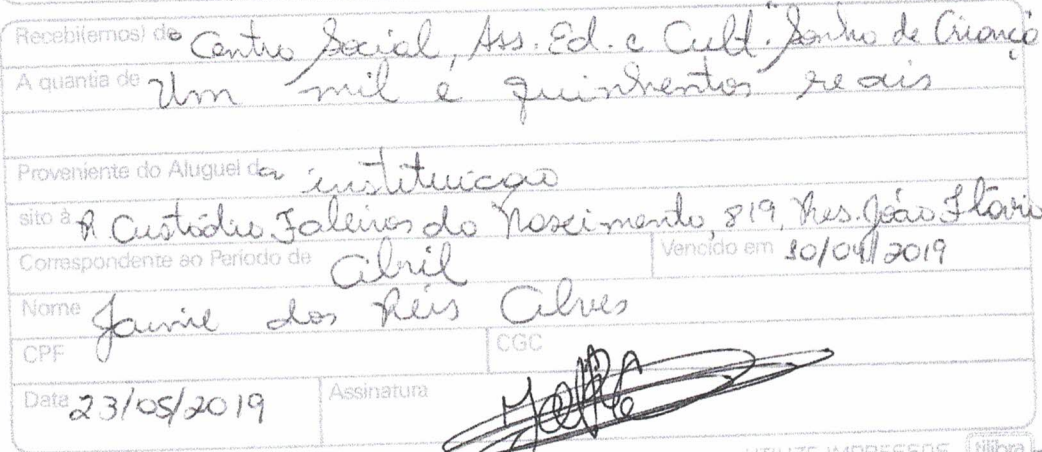 Recebi(emos) de Centro Social, Ass. Ed. e Cult. "Sonho de Criança
A quantia de Um mil e quinhentos reais
Proveniente do Aluguel da instituicão
sito à R Custódio Faleiros do Nascimento, 819, Res. João Flávio
Correspondente ao Período de Abril Vencido em 30/04/2019
Nome Jaime dos Reis Alves
CPF CGC
Data 23/05/2019 Assinatura
UTILITE IMPRESSOS tilibra